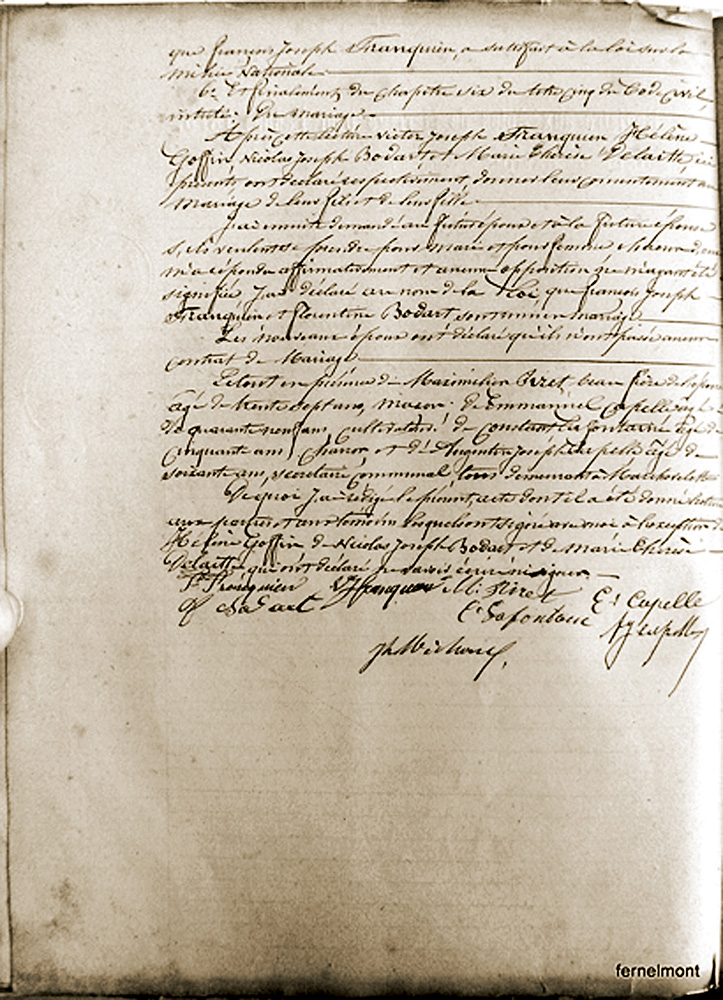 que François Joseph Franquien, a satisfait à la loi sur la
milice Nationale.
6° Et finalement, du chapitre six du titre cinq du Code Civil
intitulé: Du Mariage.
Après cette lecture Victor Joseph Franquien Hélène
Goffin, Nicolas Joseph Bodart et Marie Thérèse Delaitte, ici
présents, ont déclaré respectivement, donner leur consentement au
Mariage de leur fils et de leur fille.
J'ai ensuite demandé au futur époux et à la future épouse
s'ils veulent se prendre pour mari et pour femme, chacun d'eux
m'a répondu affirmativement et aucune opposition ne m'ayant été
signifiée J'ai déclaré au nom de la Loi, que François Joseph
Franquien et Florentine Bodart, sont unis en mariage.
Les nouveaux époux ont déclaré qu'ils n'ont passé aucun
contrat de Mariage.
Le tout en présence de Maximilien Piret, beau frère de l'époux
âgé de trente sept ans, maçon; de Emmanuel Capelle âgé
de quarante ans, cultivateur; de Constant Lafontaine âgé de
cinquante ans, et d'Augustin Joseph Capelle âgé de
soixante ans, secrétaire communal, tous demeurant à
De quoi J'ai rédigé le présent acte dont il a été donné lecture
aux parties et aux témoins lesquels ont signé avec moi à l'exception de
Hélène Goffin de Nicolas Joseph Bodart et de Marie Thérèse
Delaitte qui ont déclaré ne savoir écrire ni signer.
F. Franquien Franquien M. Piret E. Capelle
Bodart C. Lafontaine
fernelmont